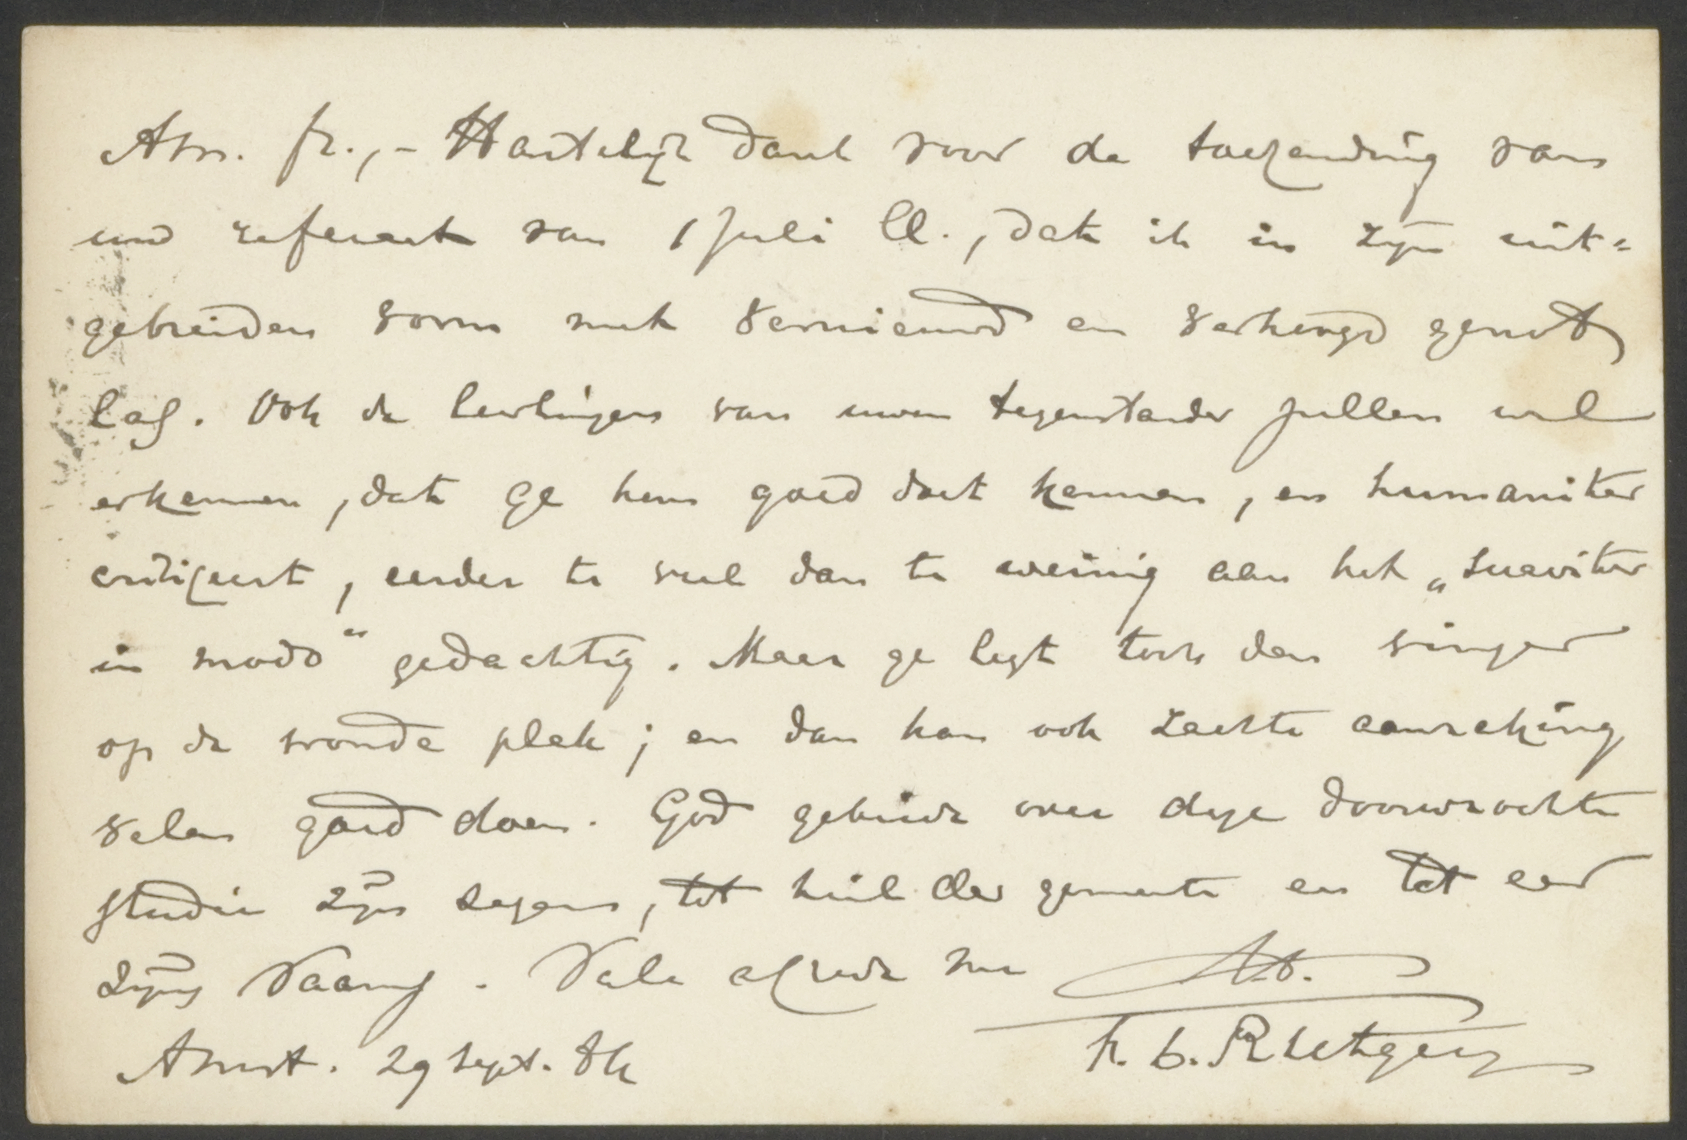 Am. fr.,- Hartelijk dank voor de toezending van
uw referaat van 1 Juli ll., dat ik in zijn uit=
gebreiden vorm met vernieuwd en verhoogd genot
las. Ook de leerlingen van uwen tegenstander zullen wel
erkennen, dat ge hem goed doet kennen, en humaniter
critiseert, eerder te veel dan te weinig aan het „suaviter
in modo" gedachtig. Maar ge legt toch den vinger
op de wonde plek; en dan kan ook zachte aanraking
velen goed doen. God gebiede over deze doorwrochte
studie zijn zegen, tot heil der gemeente en tot eer
zijns Naams. Vale ac fave me tt.
Amst. 29 Sept. 84 F. L. Rutgers